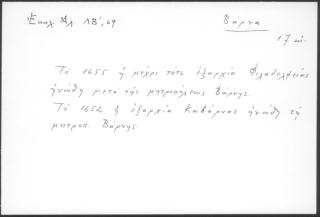 Ἐκκλ. Ἀλ. ΛΒ', 69
Βάρνα
17 αἰ.
Τὸ 1655 ἡ μέχρι τότε ἐξαρχία Φιλαδελφείας
ἡνώθη μετὰ τῆς μητροπόλεως Βάρνης.
Τὸ 1652 ἡ ἐξαρχία Καβάρνας ἡνώθη τῇ
μητροπ. Βάρνης.